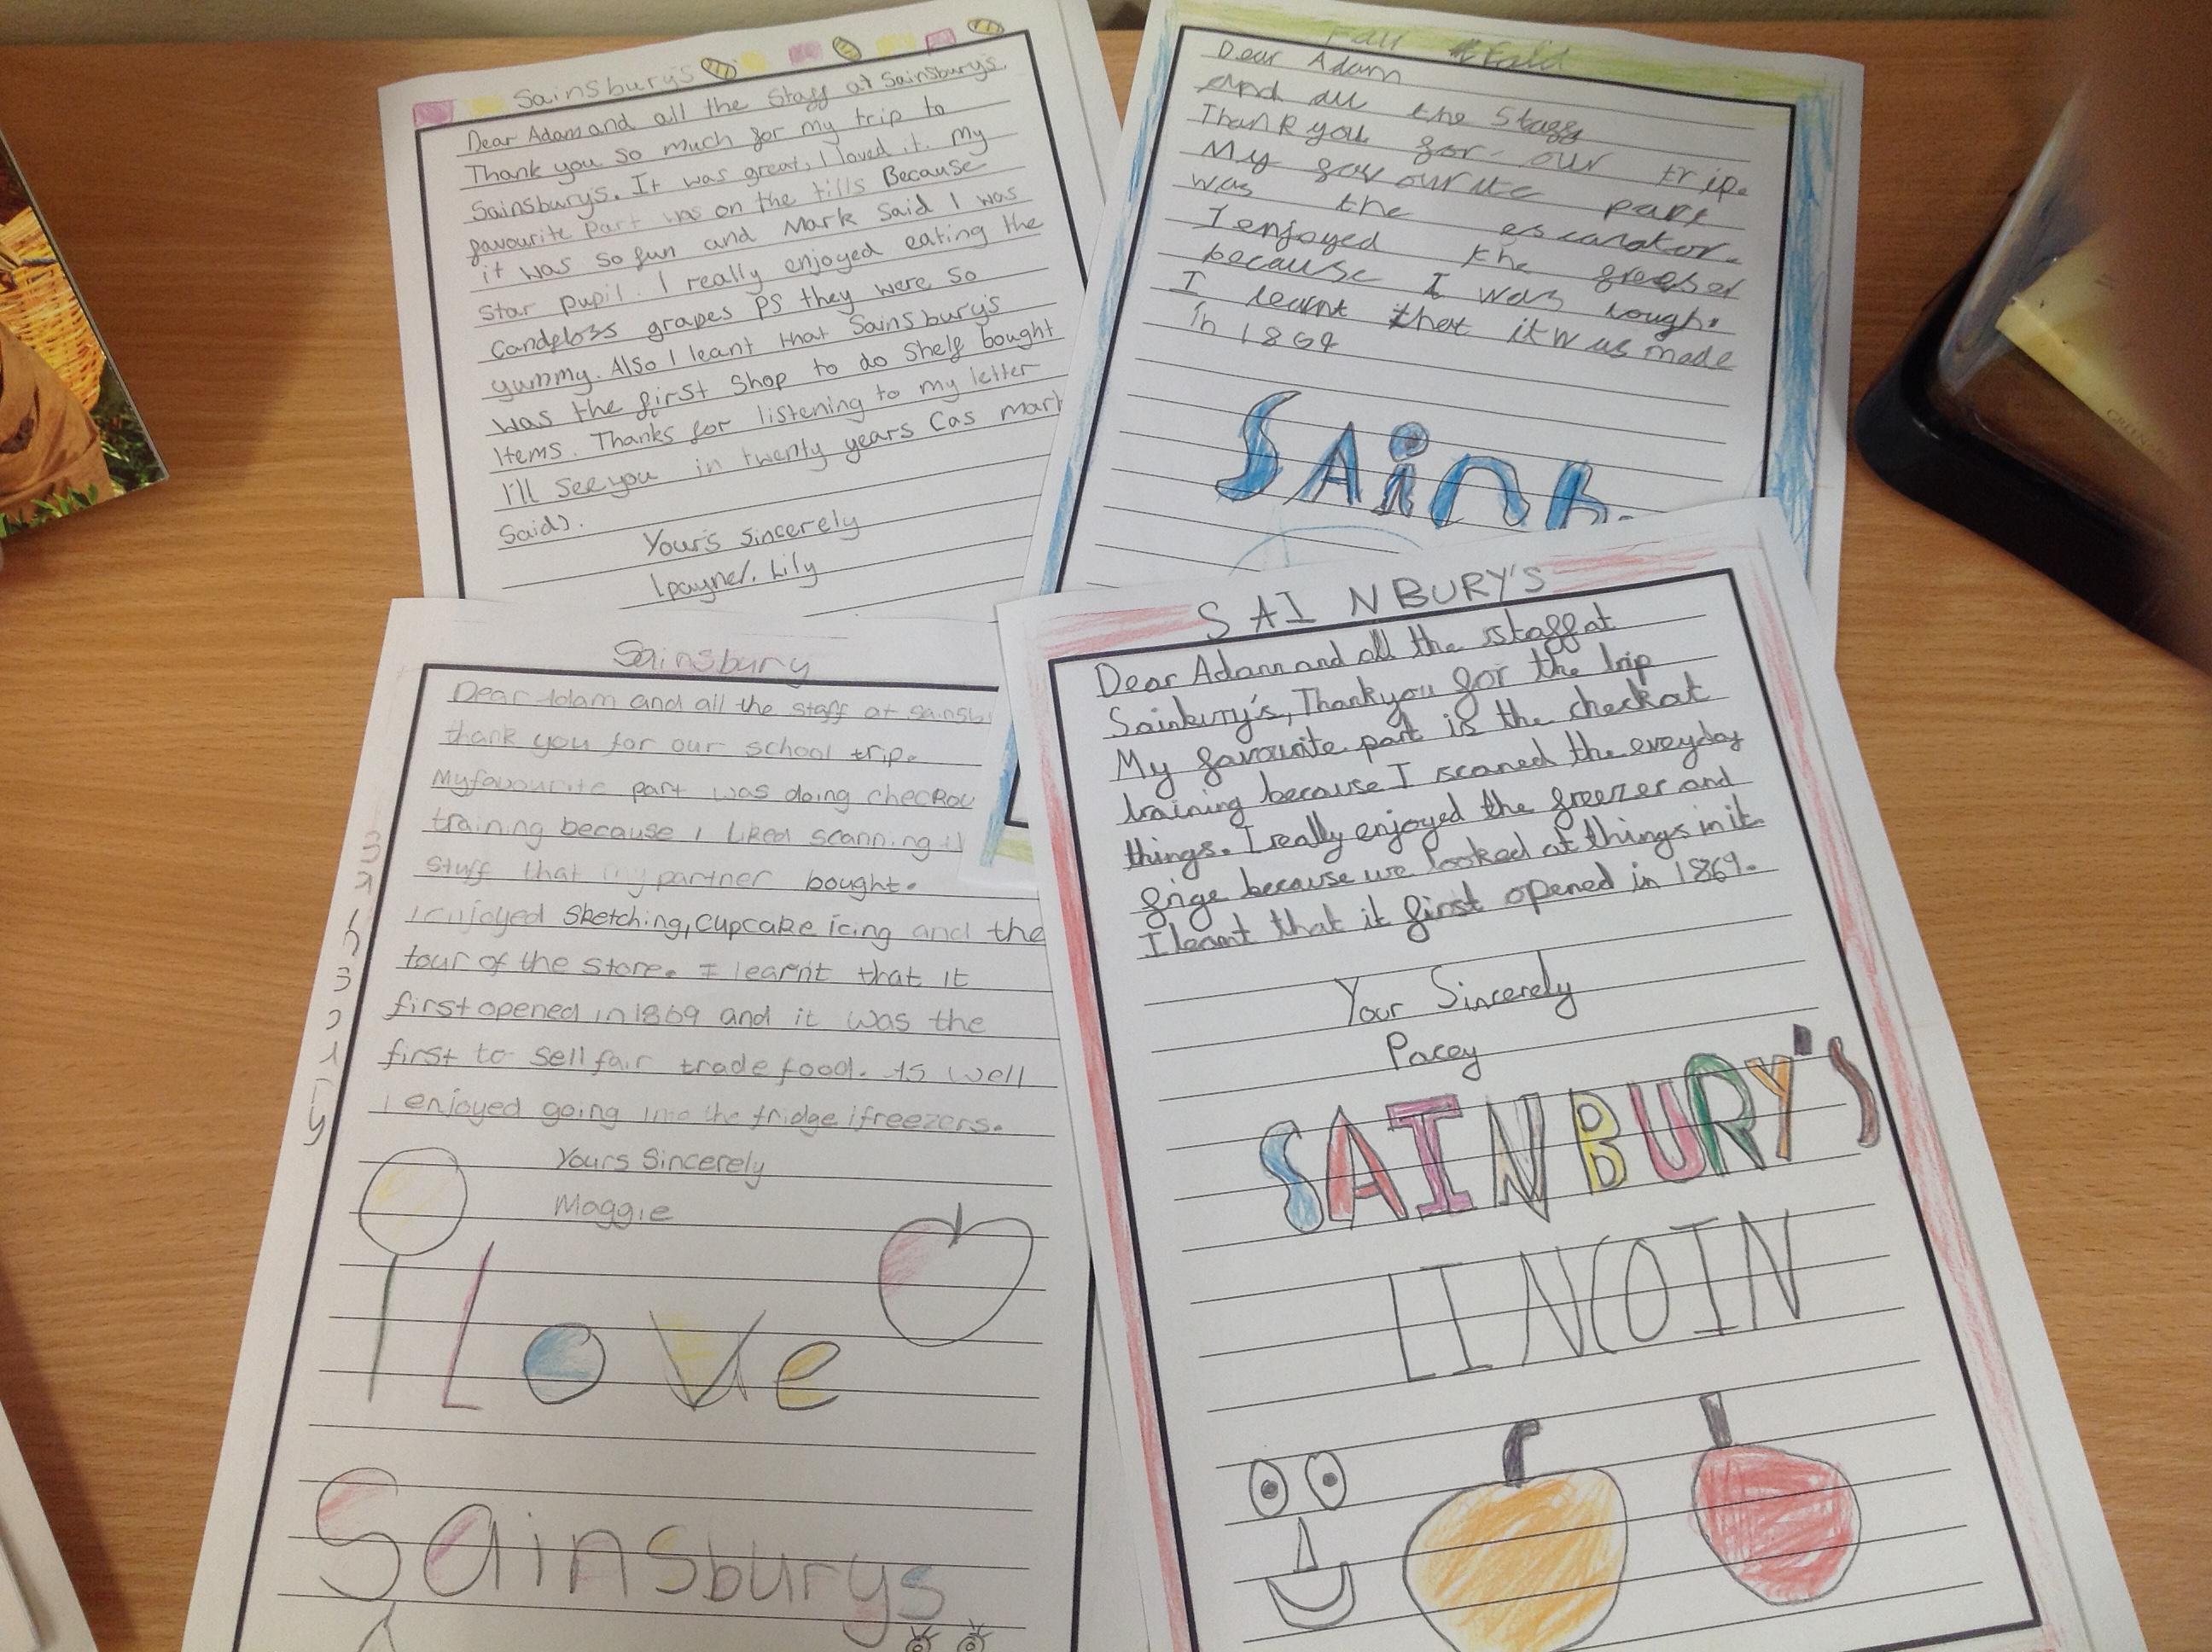 Sainsbury's
Dear Adam and all the Staff at Sainsbury's
Thank you so much for my trip to
Sainsbury's. It was great, I loved it. My
favourite part was on the tills Because
it was so fun and Mark Said I was
Star pupil. I really enjoyed eating the
Candyfloss grapes PS they were so
yummy. Also I leant that Sainsbury's
was the first Shop to do Shelf bought
Items. Thanks for listening to my letter
I'll See you in twenty years Cas mark
Said).
Your's Sincerely
Lily
Dear Adam
And all the Staff
Thank you for our trip.
My favourite part
was the escanator.
I enjoyed the
because I was tough.
I learnt that it was made
in 1869
SAins
Sainsbury
Dear Adam and all the staff at sainsbu
thank you for our school trip.
My favourite part was doing checkou
training because I liked scanning
stuff that my partner bought.
I enjoyed Sketching, Cupcake icing and the
tour of the store. I learnt that it
first opened in 1869 and it was the
first to sell fair trade food. As well
I enjoyed going into the fridge freezers.
Yours Sincerely
Maggie
I Love
Sainsburys
SAINBURY'S
Dear Adam and all the staff at
Sainbury's, Thankyou for the trip
My favourite part is the checkout
training because I scaned the eveyday
things. I really enjoyed the freezer and
frige because we looked at things in it.
I learnt that it first opened in 1869.
Your Sincerely
Pacey
SAINBURY'S
LINCOIN